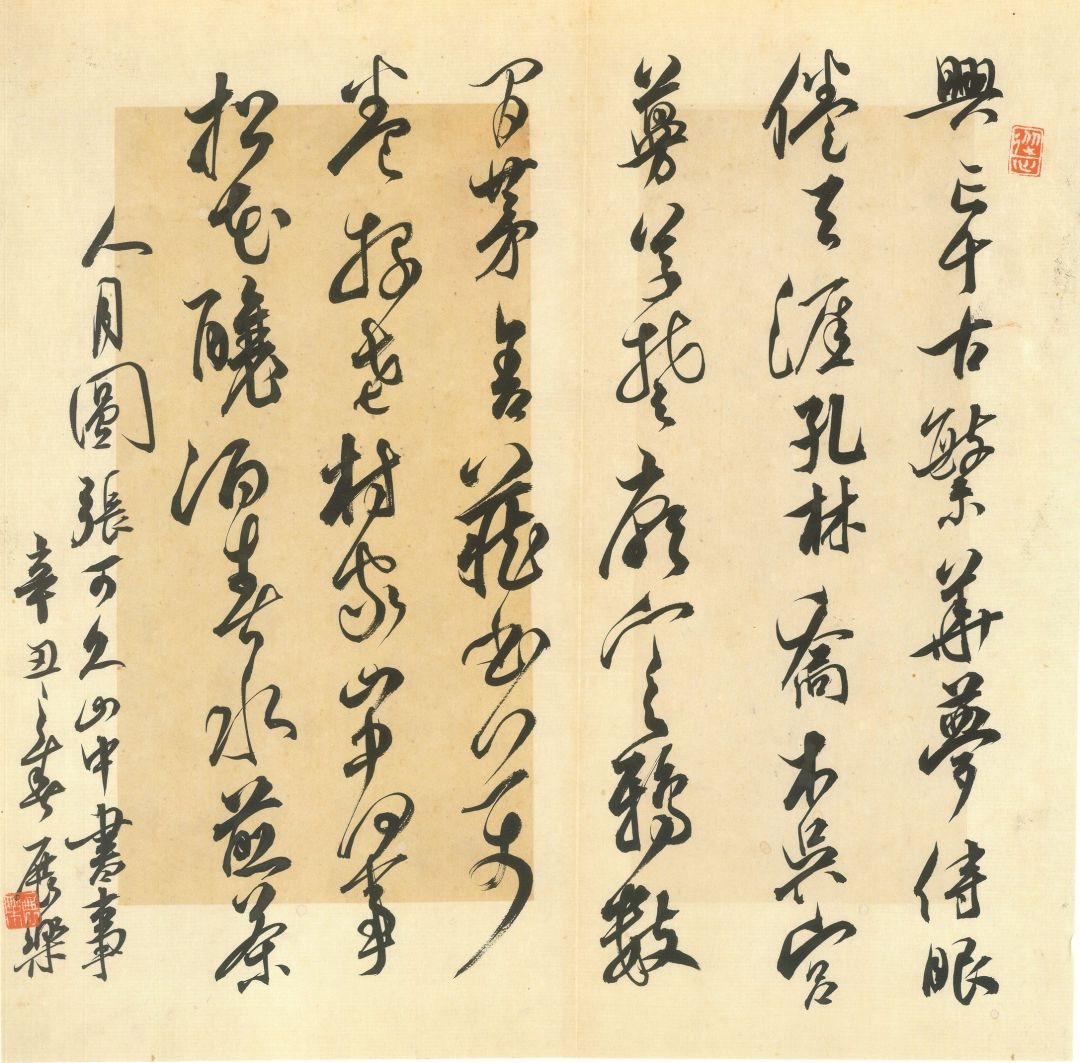 興亡千古繁華夢詩眼
倦天涯孔林喬木吳宮
蔓草楚廟寒鴉數
間茅舍藏書万
卷投老村家山中何事
松花釀酒春水煎茶
人月圓張可久山中書事
辛丑之春展樂